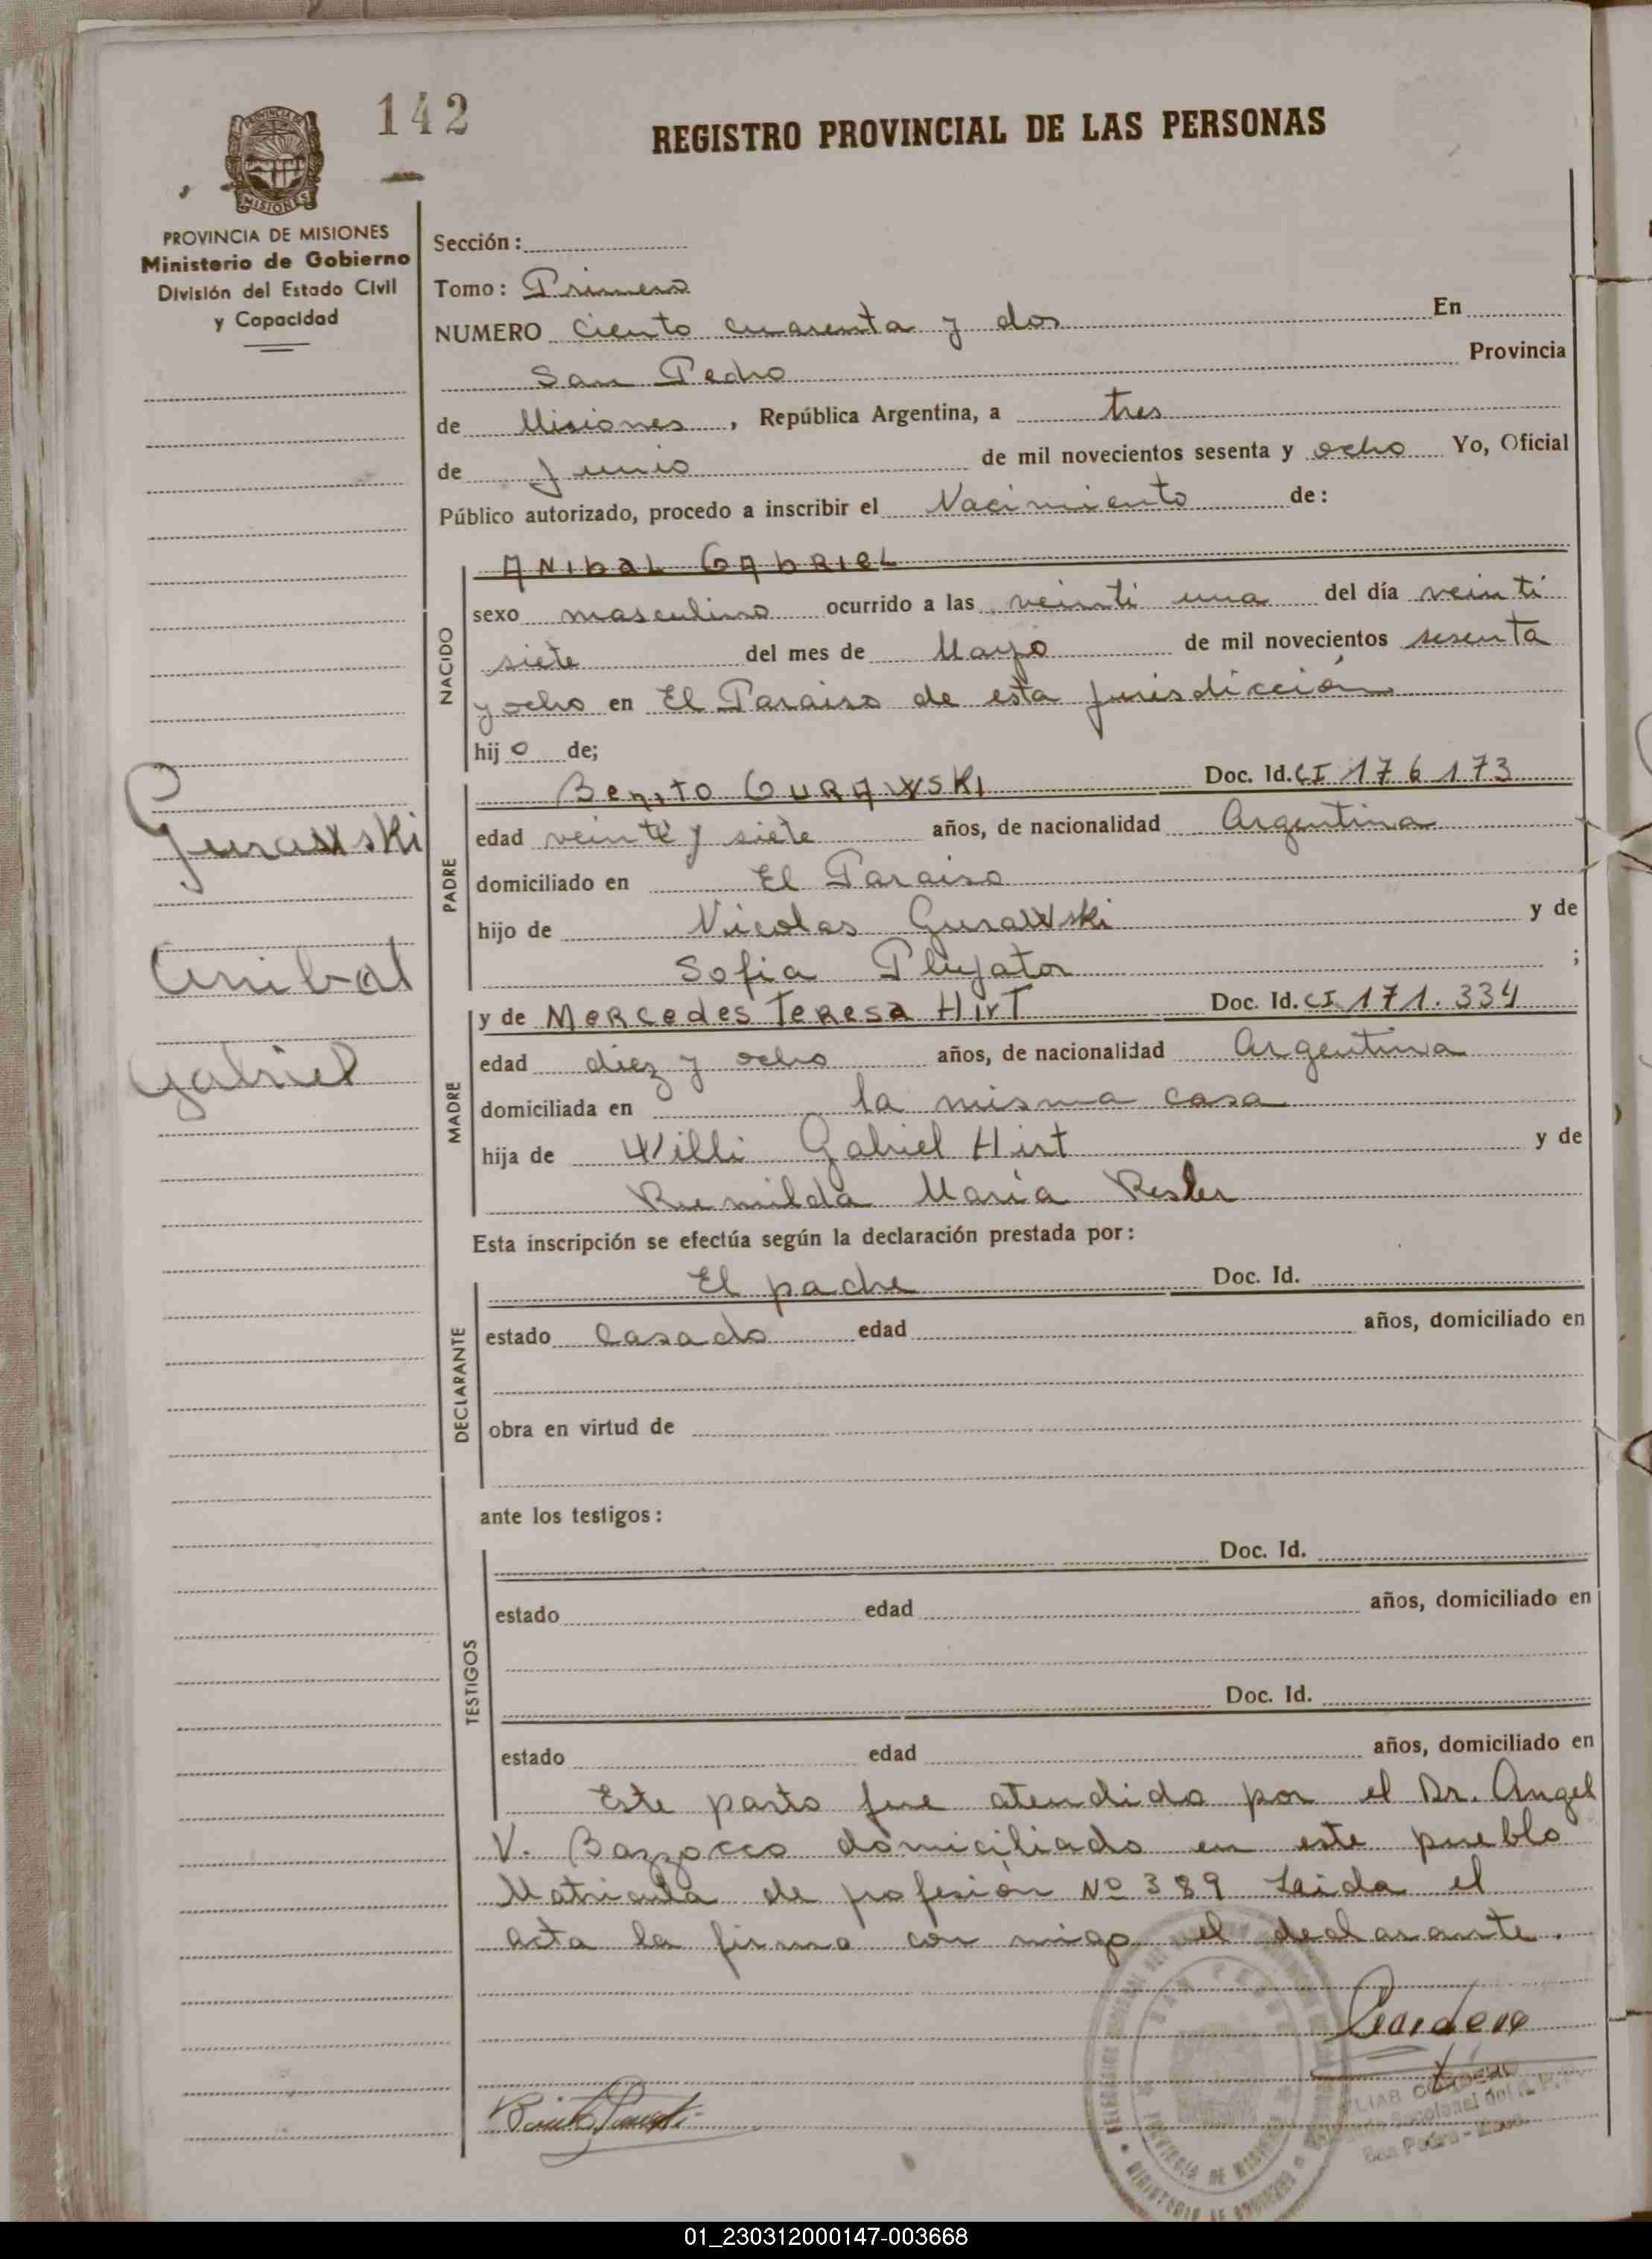 142
REGISTRO PROVINCIAL DE LAS PERSONAS
PROVINCIA DE
MISIONES
PROVINCIA DE MISIONES
Ministerio de Gobierno
División del Estado Civil
y Capacidad
Sección:
Tomo: Primero
NUMERO Ciento cuarenta y dos En
San Pedro Provincia
de Misiones, República Argentina, a tres
de Junio de mil novecientos sesenta y ocho Yo, Oficial
Público autorizado, procedo a inscribir el Nacimiento de:
NACIDO
ANIbAL GAbRIEL
sexo masculino ocurrido a las veinti una del día veinti
siete del mes de Mayo de mil novecientos sesenta
y ocho en El Paraiso de esta jurisdicción
hijo de;
Gurawski
Anibal
Gabriel
PADRE
Benito GURAWSKI Doc. Id. CI 176173
edad veinte y siete años, de nacionalidad Argentina
domiciliado en El Paraiso
hijo de Nicolas Gurawski y de
Sofia ;
MADRE
y de Mercedes Teresa Hirt Doc. Id. CI 171.334
edad diez y ocho años, de nacionalidad Argentina
domiciliada en la misma casa
hija de Willi Gabriel Hirt y de
María
Esta inscripción se efectúa según la declaración prestada por:
DECLARANTE
El padre Doc. Id.
estado Casado edad años, domiciliado en
obra en virtud de
ante los testigos:
TESTIGOS
Doc. Id.
estado edad años, domiciliado en
Doc. Id.
estado edad años, domiciliado en
Este parto fue atendido por el Dr. Angel
V. Bazzocco domiciliado en este pueblo
Matricula de profesión Nº 389 Leida el
acta la firma con migo el declarante.
SAN PEDRO
PROVINCIA DE MISIONES
MINISTERIO DE GOBIERNO
San Pedro - Mnes.
01_230312000147-003668